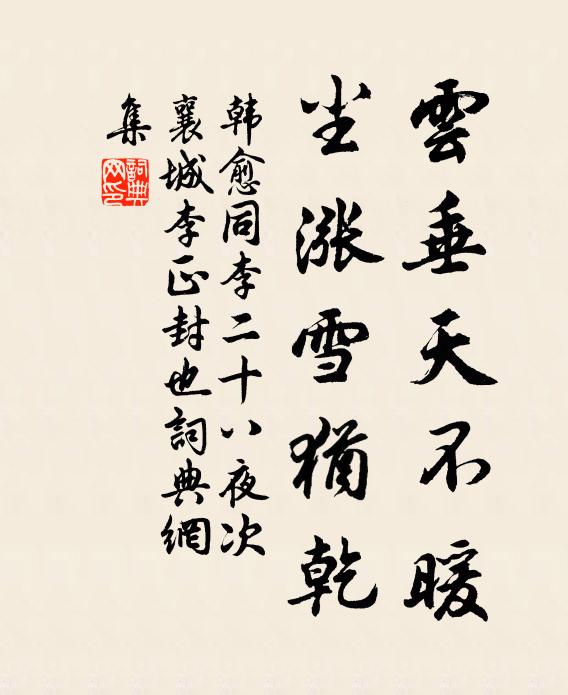 雲垂天不暖
尘漲雪猶乾
韩愈同李二十八夜次
襄城李正封也詞典網
集
詞典
网印